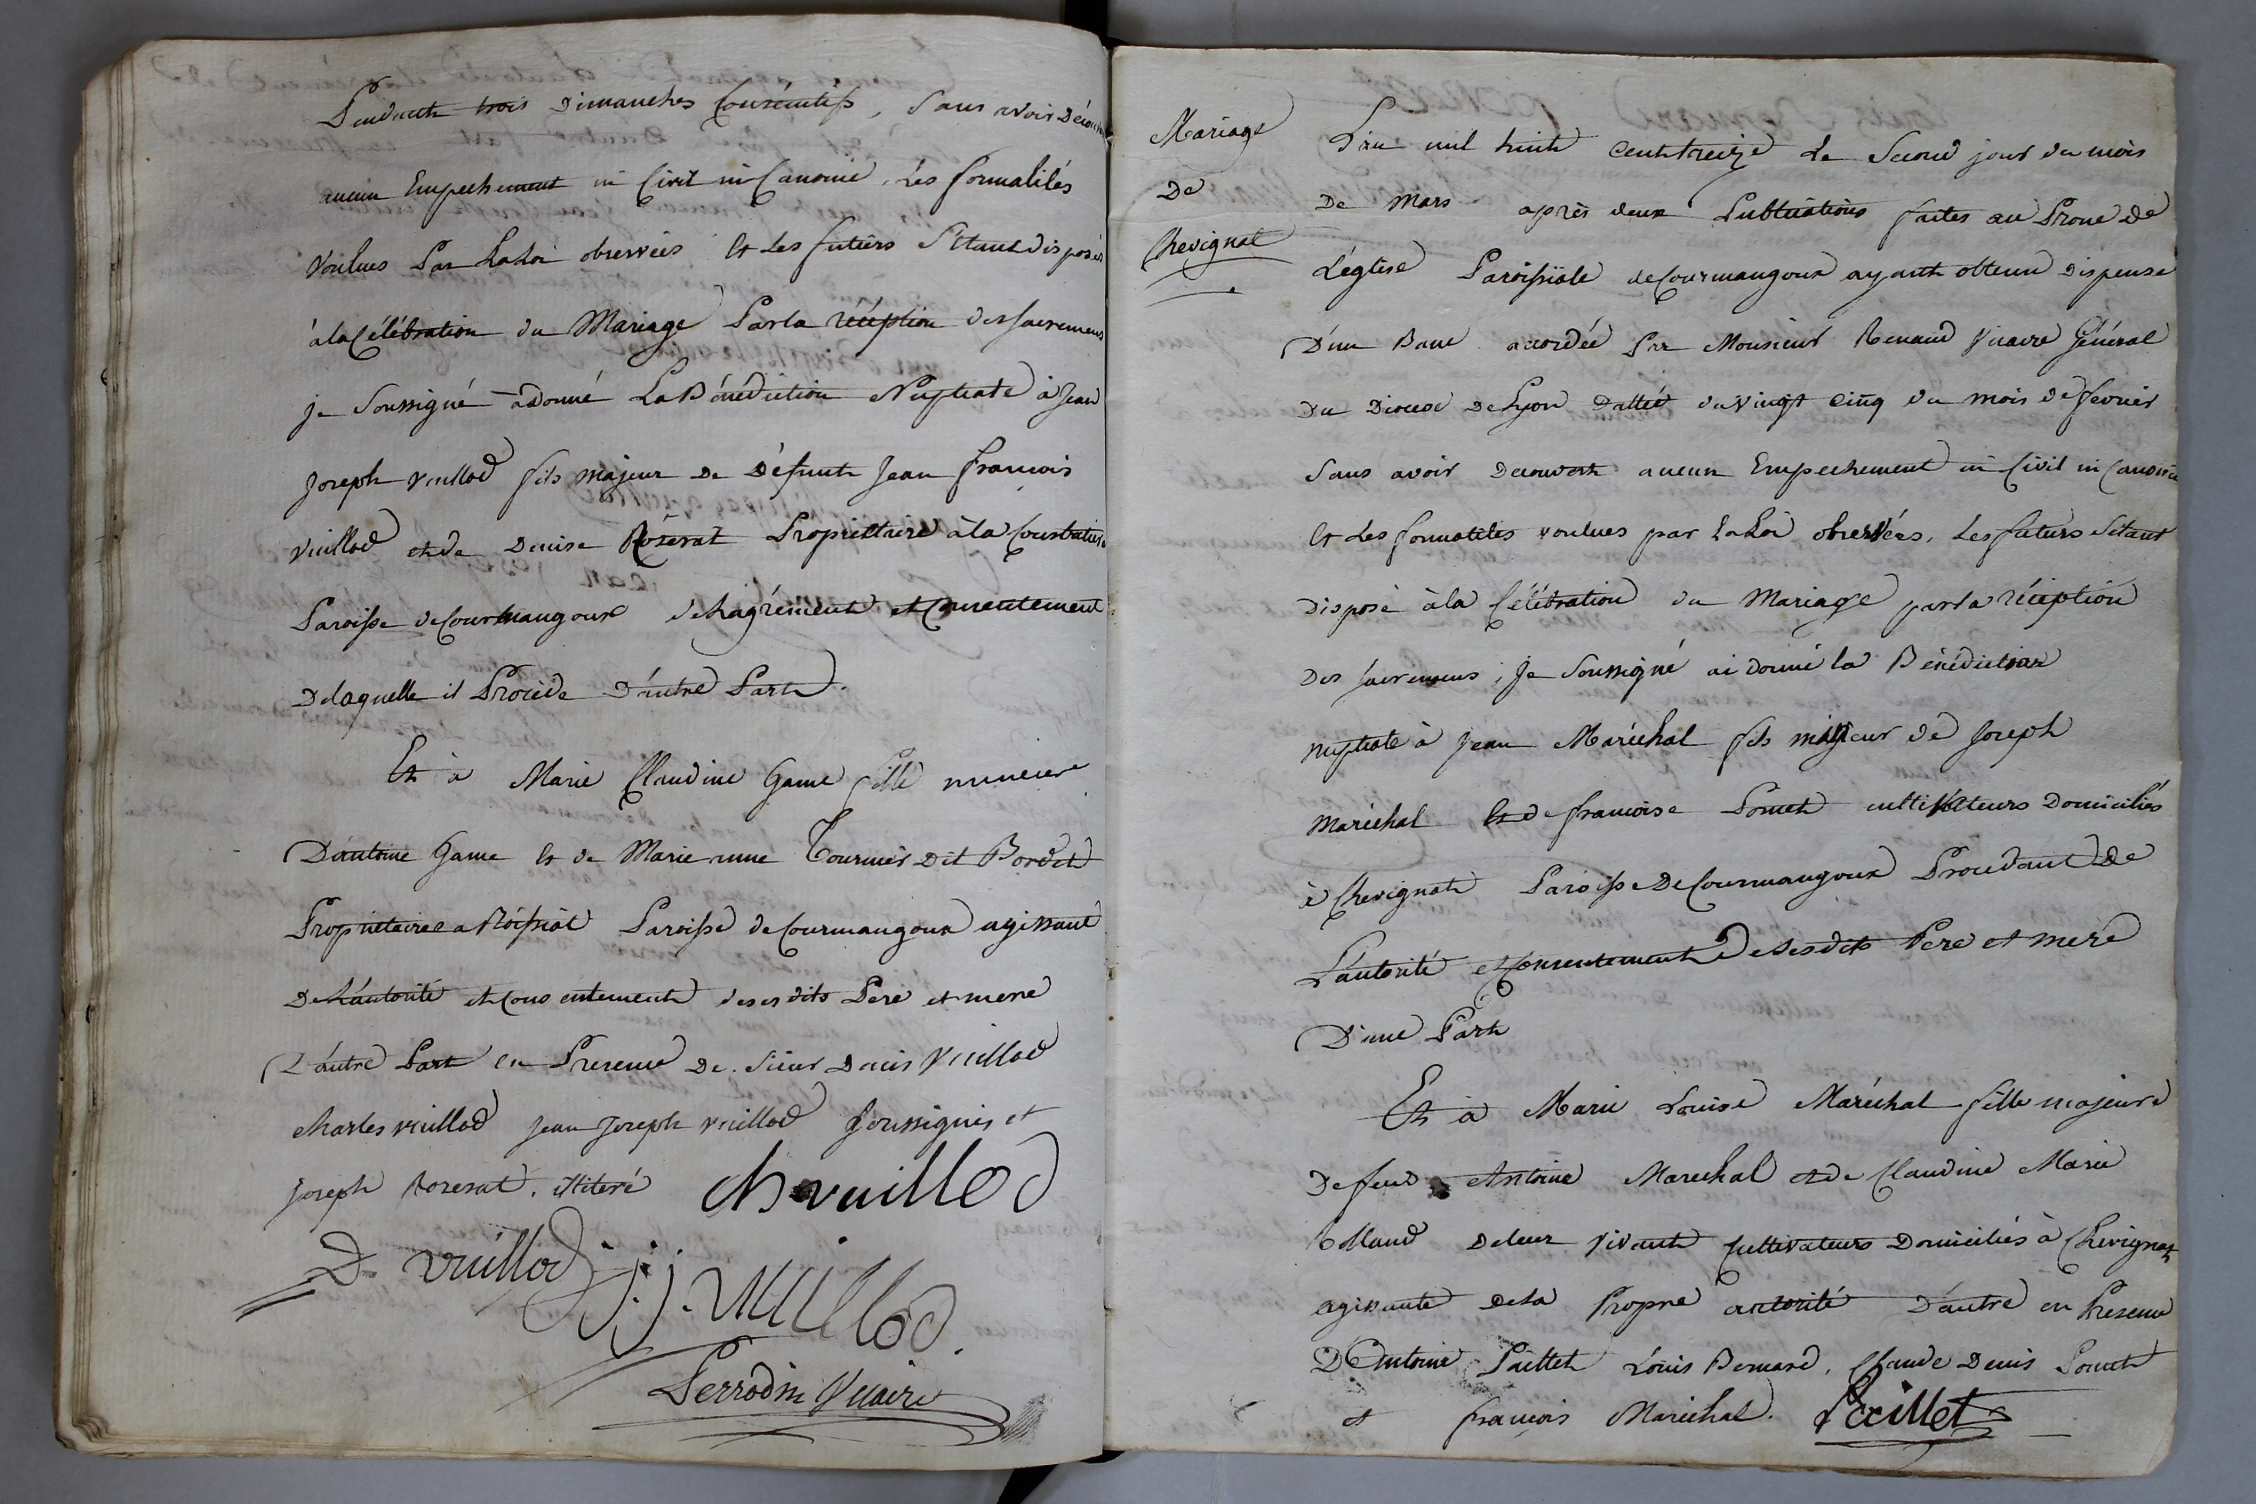 Pendant trois Dimanches Consécutifs, Sans avoir Décou
aucun Empechement ni Civil ni Canonic, Les formalités
Voulues Par La Loi observées Et Les futurs S'étant disposés
à la Célébration du Mariage Par la réception des Sacremens
je Soussigné a donné La Bénédiction Nuptiale à Jean
Joseph Vuillod fils majeur De Défunt Jean François
Vuillod et de Denise Rozerat Propriétaire à la Courbatiere
Paroisse de Courmangoux de L'agrément et Consentement
De laquelle il Procède D'autre Part.
Et à Marie Claudine Game fille mineure
D'antoine Game Et de Marie anne Tournier Dit Bordet
Propriétaires a Roissiat Paroisse de Courmangoux agissant
De L'autorité et Consentement de ses dits Pere et mere
D'autre Part En Presence De Sieur Denis Vuillod
Charles Vuillod Jean Joseph Vuillod Soussignés et
Joseph Rozerat. illiteré Ch vuillod
D vuillod j. j. vuillod.
Perrodin Vicaire
Mariage
De
Chevignat
L'an mil huit cent treize Le Second jour du mois
De Mars après deux Publications faites au Prone de
L'église Paroissiale de Courmangoux ayant obtenu Dispense
D'un Banc accordée Par Monsieur Renaud Vicaire Général
Du Diocese De Lyon Dattée du Vingt cinq du mois de fevrier
Sans avoir Decouvert aucun Empechement ni Civil ni Canonic
Et Les formalités voulues par La Loi observées, Les futurs S'étant
Disposé à la Célébration du Mariage par la réception
Des Sacremens, Je Soussigné ai donné la Bénédiction
nuptiale à Jean Maréchal fils majeur de Joseph
Maréchal Et de françoise Pomet cultivateurs Domiciliés
à Chevignat Paroisse De Courmangoux Procédant De
L'autorité et Consentement De ses dits Pere et mere
D'une Part
Et à Marie Louise Maréchal fille majeure
De feu Antoine Marechal et de Claudine Marie
Rolland De leur Vivant Cultivateurs Domiciliés à Chevignat
agissante De sa Propre autorité D'autre en Presence
D'Antoine Paillet Louis Bernard, Claude Denis Pomet
et françois Maréchal. Paillet